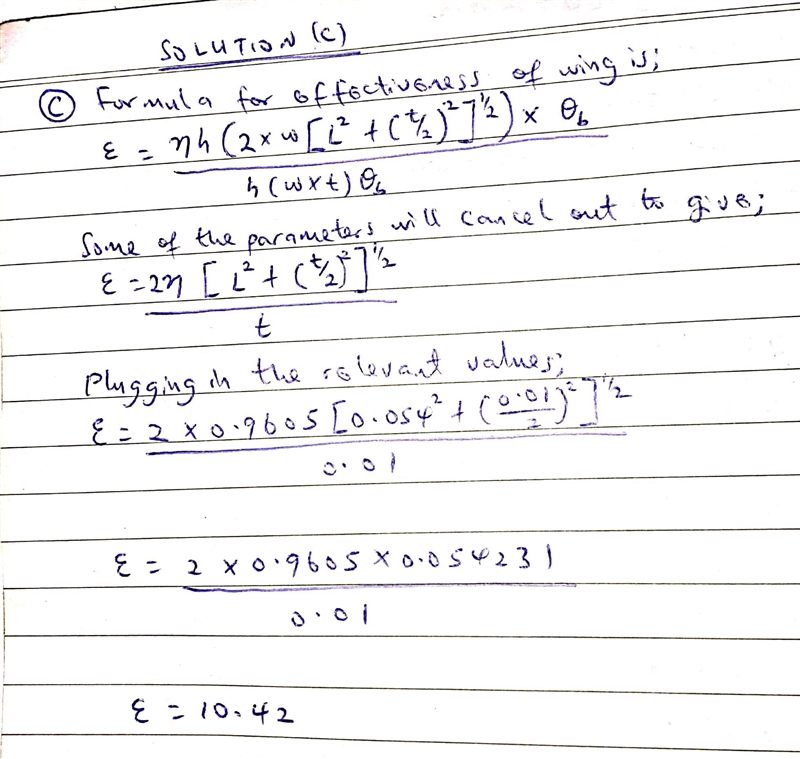 SOLUTION (C)
(C) Formula for effectiveness of wing is;
ε = ηh (2 x w [L² + (t/2)²]^1/2) x θb
h (w x t) θb
Some of the parameters will cancel out to give;
ε = 2η [L² + (t/2)²]^1/2
t
Plugging in the relevant values;
ε = 2 x 0.9605 [0.054² + (0.01/2)²]^1/2
0.01
ε = 2 x 0.9605 x 0.054231
0.01
ε = 10.42